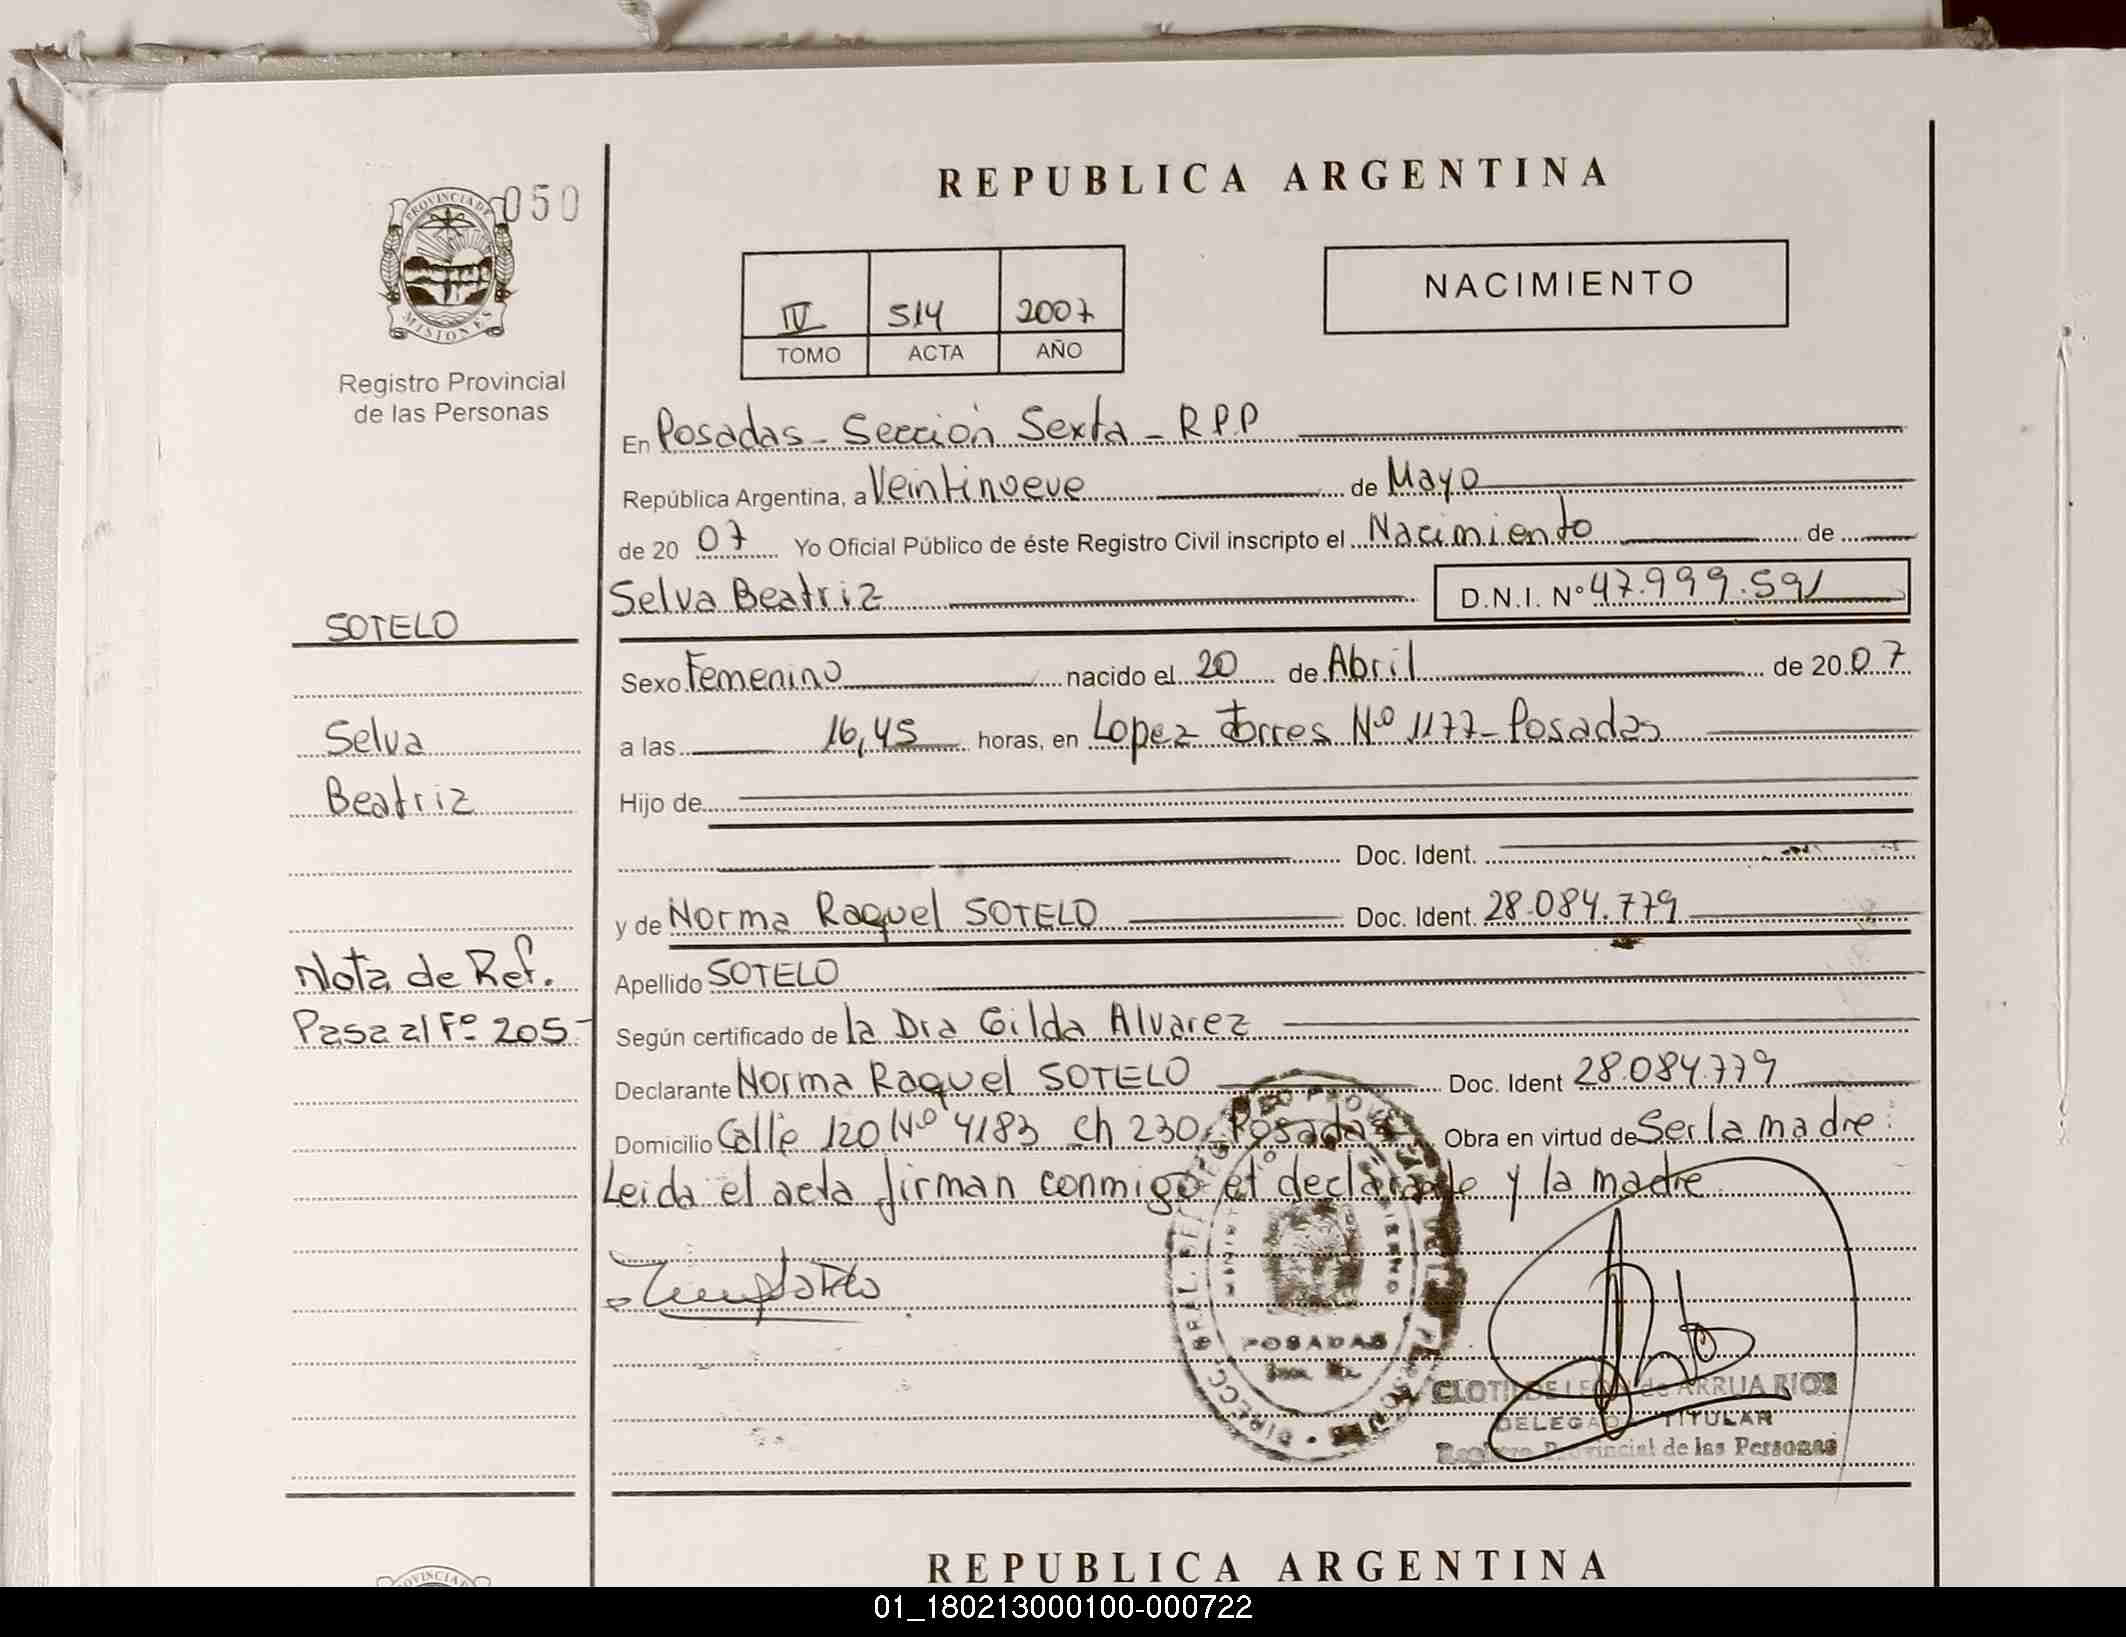 REPUBLICA ARGENTINA
050
PROVINCIA DE
MISIONES
Registro Provincial
de las Personas
NACIMIENTO
IV 514 2007
TOMO ACTA AÑO
En Posadas - Sección Sexta - R.P.P
República Argentina, a Veintinueve de Mayo
de 20 07 Yo Oficial Público de éste Registro Civil inscripto el Nacimiento de
Selva Beatriz D.N.I. Nº 47.999.591
SOTELO
Sexo Femenino nacido el 20 de Abril de 20 07
Selva
a las 16,45 horas, en Lopez Torres Nº 1177 - Posadas
Beatriz
Hijo de
Doc. Ident.
y de Norma Raquel SOTELO Doc. Ident. 28.084.779
Nota de Ref.
Apellido SOTELO
Pasa al Fº 205-
Según certificado de la Dra Gilda Alvarez
Declarante Norma Raquel SOTELO Doc. Ident 28.084.779
Domicilio Calle 120 Nº 4183 Ch 230 - Posadas Obra en virtud de Ser la madre:
Leida el acta firman conmigo el declarante y la madre
POSADAS
CLOTILDE LEON de ARRUA RIOS
DELEGADA TITULAR
Registro Provincial de las Personas
REPUBLICA ARGENTINA
01_180213000100-000722